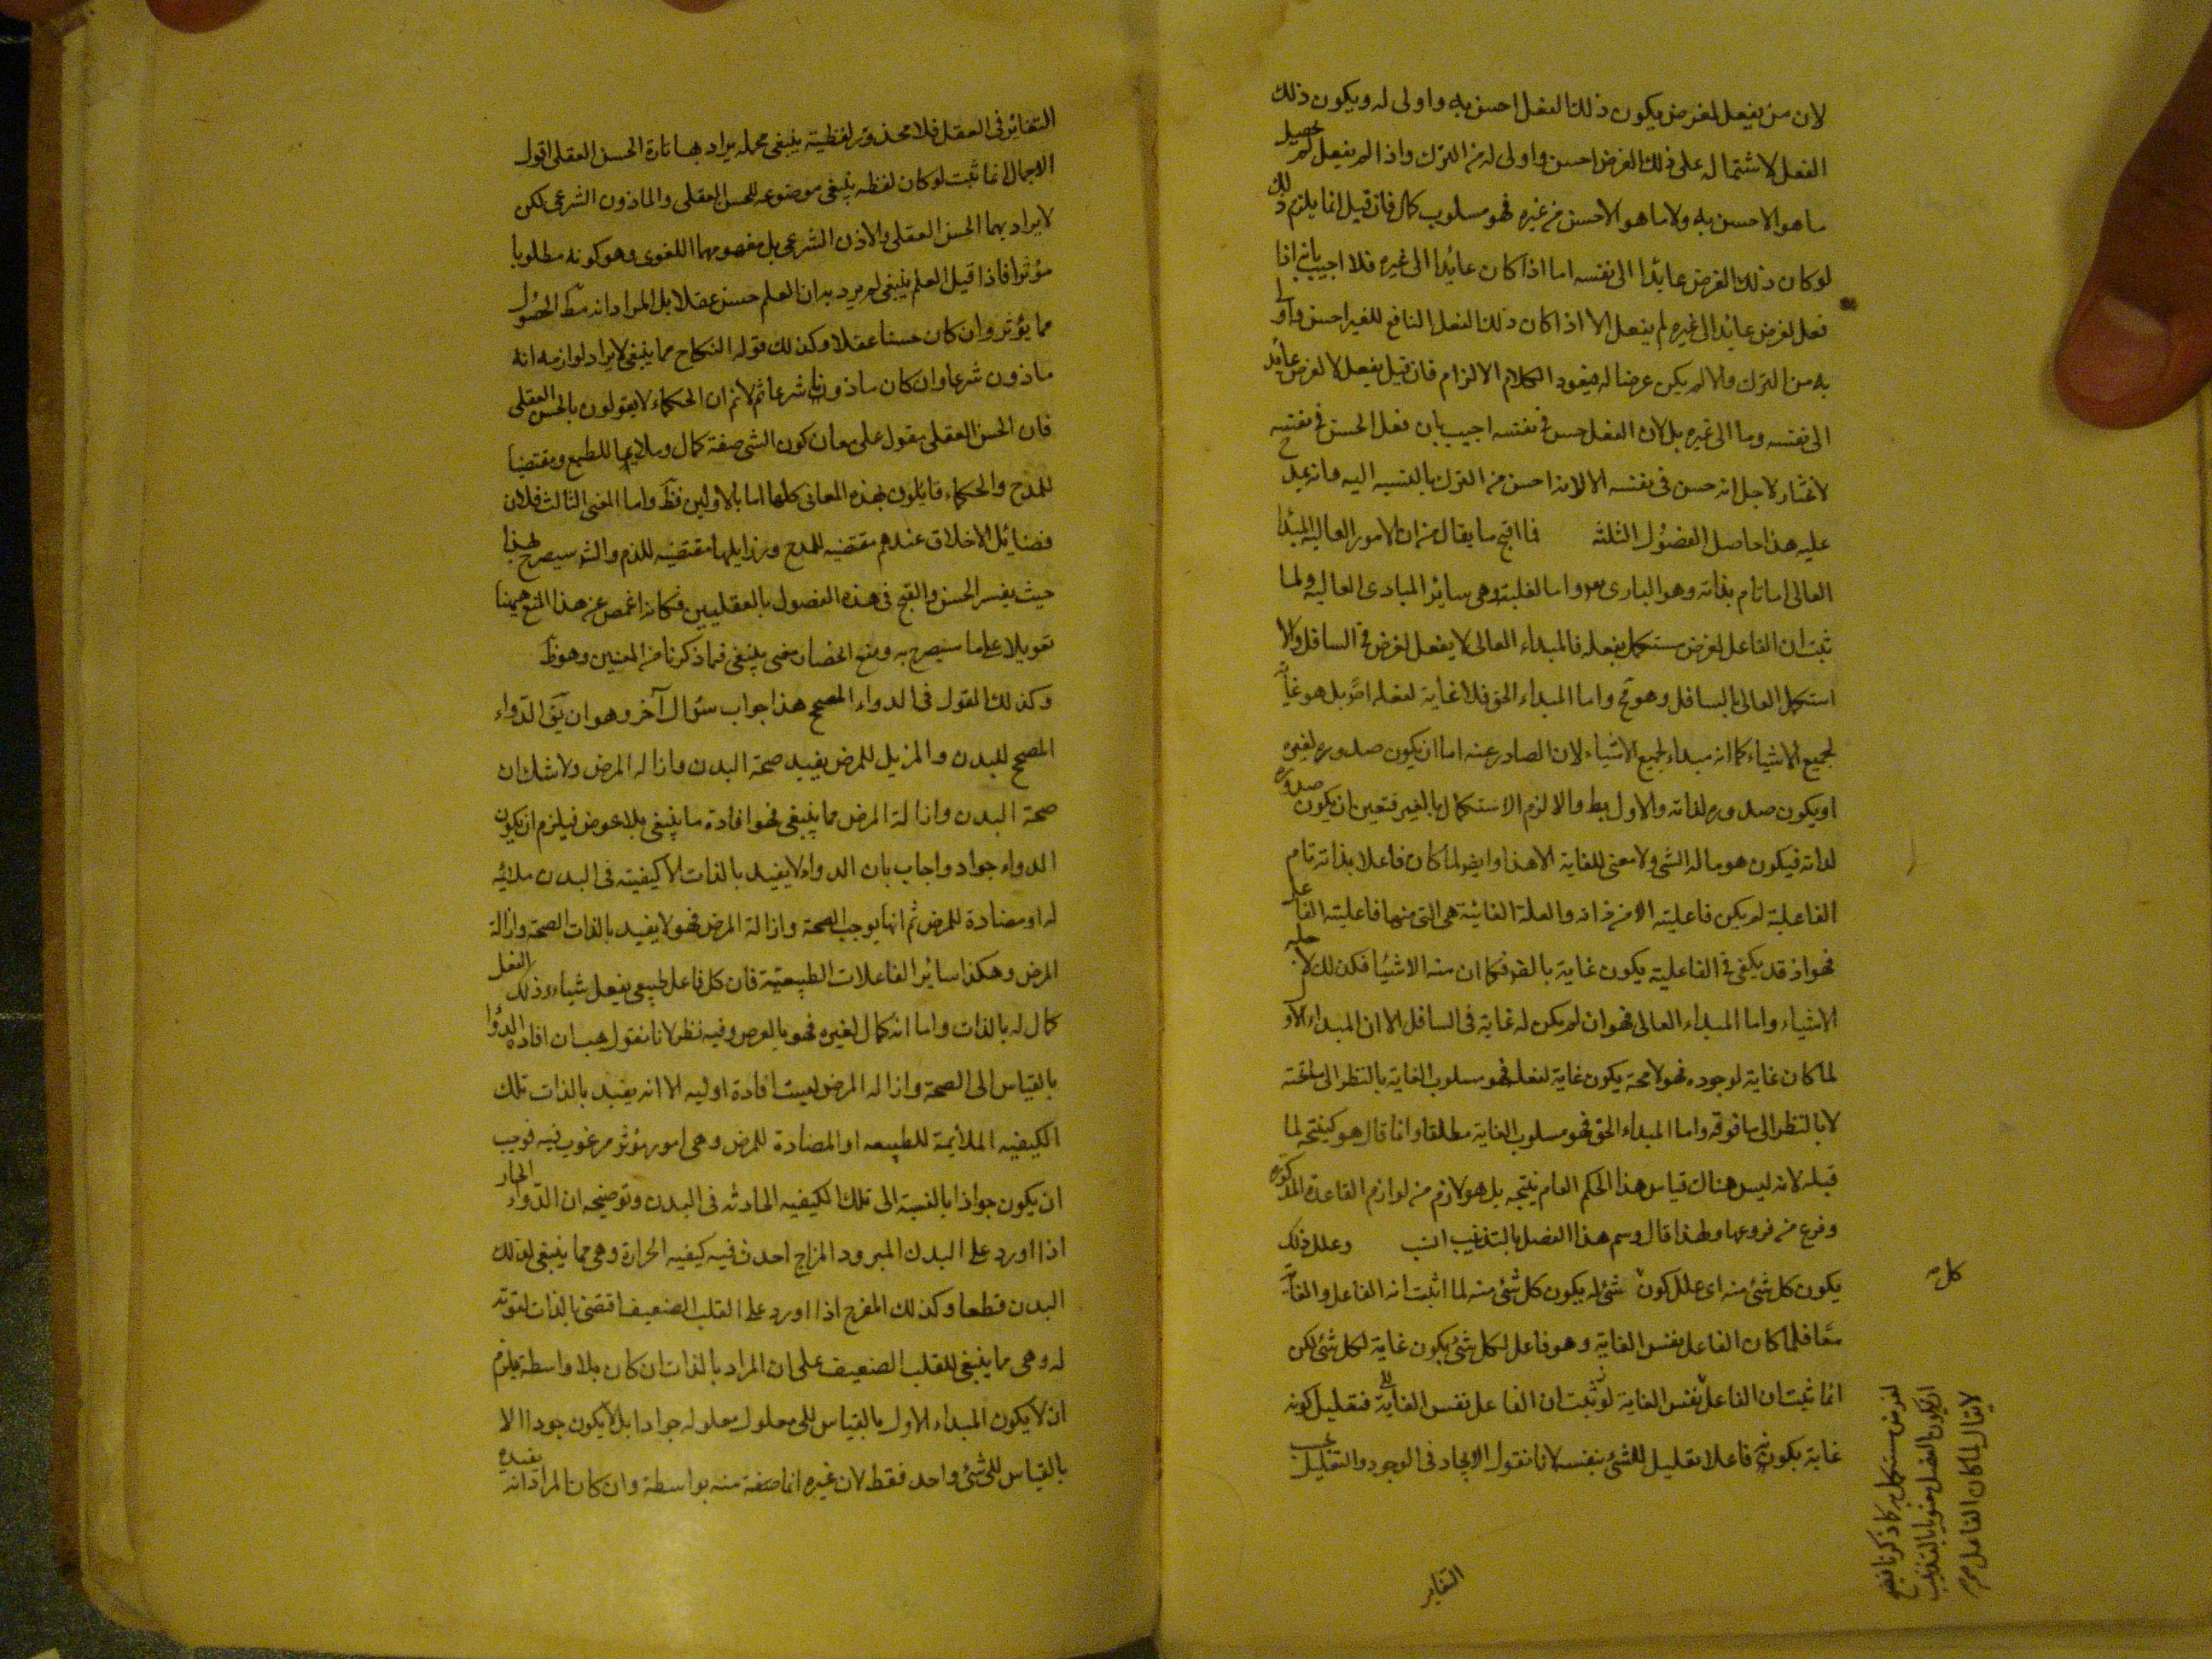 لان من يفعل لغرض يكون ذلك الفعل احسن به واولى له ويكون ذلك
الفعل لاشتماله على ذلك الغرض احسن واولى له من الترك واذا لم يفعل لم يحصل
ما هو الاحسن به ولا ما هو الاحسن من غيره فهو مسلوب كمال فان قيل انما يلزم ذلك
لو كان ذلك الغرض عائدا الى نفسه اما اذا كان عائدا الى غيره فلا اجيب بانه اذا
فعل لغرض عائد الى غيره لم يفعل الا اذا كان ذلك الفعل النافع للغير احسن واولى
به من الترك والا لم يكن غرضا له فيعود الكلام الالزام فان قيل يفعل لا لغرض عائد
الى نفسه وما الى غيره بل لان الفعل حسن في نفسه اجيب بان فعل الحسن في نفسه
لا يختار لاجل انه حسن في نفسه الا لانه احسن من الترك بالنسبه اليه
عليه هذا حاصل الفصول الثلثه فما اقبح ما يقال من ان الامور العاليه المبدأ
العالى اما تام بذاته وهو البارى واما وهى سائر المبادى العاليه ولما
ثبت ان الفاعل لغرض مستكمل بفعله فالمبداء العالى لا يفعل لغرض في السافل والا
استكمل العالى بالسافل وهو مح واما المبداء الحق فلا غاية لفعله بل هو غاية
لجميع الاشياء كما انه مبداء لجميع الاشياء لان الصادر عنه اما ان يكون صدوره لغيره
او يكون صدوره لذاته والاول بط والا لزم الاستكمال بالغير فتعين ان يكون صدوره
لذاته فيكون هو ما له الشى ولا معنى للغاية الا هذا وايض لما كان فاعلا بذاته تام
الفاعلية لم يكن فاعليته الا من ذاته والعلة الغائية هى التى منها فاعليته الفاعل
فهو اذ قد يكفى في الفاعلية يكون غاية فكما ان منه الاشياء فكذلك لاجله
الاشياء واما المبداء العالى فهو ان لم يكن له غاية في السافل الا ان المبداء الاول
لما كان غاية لوجوده فهو لا محة يكون غاية لفعله فهو مسلوب الغاية بالنظر الى ما تحته
لا بالنظر الى ما فوقه واما المبداء الحق فهو مسلوب الغاية مطلقا وانما قال هو كنتيجه لما
قبله لانه ليس هناك قياس هذا الحكم العام نتيجه بل هو لازم من لوازم القاعدة المذكوره
وفرع من فروعها ولهذا قال وسم هذا الفصل بالتذنيب انسب وعلل ذلك
يكون كل شئ منه اى علل كون شئ له يكون كل شئ منه لما اثبت انه الفاعل والغاية
معا فلما كان الفاعل نفس الغاية وهو فاعل لكل شئ يكون غاية لكل شئ لكن
انما ثبت ان الفاعل نفس الغاية لو ثبت ان الفاعل نفس الغاية فتعليل كونه
غاية بكونه فاعلا تعليل للشئ بنفسه لانا نقول الاتحاد في الوجود والتعليل بحسب
كل
لا يقال لما كان الفاعل
ان يكون الفصل معنونا بالتذنيب
لغرض مستكمل به كما ذكرنا
التغاير
التغاير في العقل فلا محذور لفظية ينبغى مجمله يراد بها تارة الحسن العقلى اقول
الاجمال انما ثبت لو كان لفظه ينبغى موضوعه للحسن العقلى والماذون الشرعى لكن
لا يراد بهما الحسن العقلى والاذن الشرعى بل مفهومهما اللغوى وهو كونه مطلوبا
مؤثرا فاذا قيل العلم ينبغى لم يرد به ان العلم حسن عقلا بل المراد انه مط الحصول
مما يؤثر وان كان حسنا عقلا وكذلك قوله النكاح مما ينبغى لا يراد لوازمه انه
ماذون شرعا وان كان ماذونا شرعا ثم لانم ان الحكماء لا يقولون بالحسن العقلى
فان الحسن العقلى مقول على معان كون الشى صفة كمال وملايما للطبع ومقتضيا
للمدح والحكماء قائلون بهذه المعانى كلها اما بالاولين فظ واما المعنى الثالث فلان
فضائل الاخلاق عندهم مقتضيه للمدح ورذايلها مقتضيه للذم والش سيصرح بهذا
حيث يفسر الحسن والقبح في هذه الفصول بالعقليين فكانه اغمض عن هذا المنع هيهنا
تعويلا على ما سيصرح به ومنع انحصار معنى ينبغى فما ذكرنا من المعنيين وهو ظ
وكذلك القول في الدواء المصحح هذا جواب سئوال آخر وهو ان يق الدواء
المصحح للبدن والمزيل للمرض يفيد صحة البدن وازاله المرض ولا شك ان
صحة البدن وازالة المرض مما ينبغى فهو افادة ما ينبغى بلا عوض فيلزم ان يكون
الدواء جواد واجاب بان الدواء لا يفيد بالذات الا كيفيته في البدن ملائمه
له او مضادة للمرض ثم انها يوجب الصحة وازالة المرض فهو لا يفيد بالذات الصحة وازالة
المرض وهكذا سائر الفاعلات الطبيعية فان كل فاعل طبيعى يفعل شياء وذلك الفعل
كمال له بالذات واما انه كمال لغيره فهو بالعرض وفيه نظر لانا نقول هب ان افاده الدواء
بالقياس الى الصحة وازاله المرض ليست افادة اوليه الا انه يفيد بالذات تلك
الكيفيه الملائمة للطبيعه او المضادة للمرض وهى امور مؤثر مرغوب فيه فوجب
ان يكون جوادا بالنسبة الى تلك الكيفيه الحادثه في البدن وتوضيحه ان الدواء الحار
اذا اورد على البدن المبرود المزاج احدث فيه كيفيه الحرارة وهى مما ينبغى لذلك
البدن قطعا وكذلك المفرح اذا اورد على القلب الضعيف اقتضى بالذات لقوته
له وهى مما ينبغى للقلب الضعيف على ان المراد بالذات ان كان بلا واسطة يلزم
ان لا يكون المبداء الاول بالقياس الى معلول معلوله جوادا بل لا يكون جودا الا
بالقياس الى شئ واحد فقط لان غيره انما منه بواسطة وان كان المراد انه يفيده